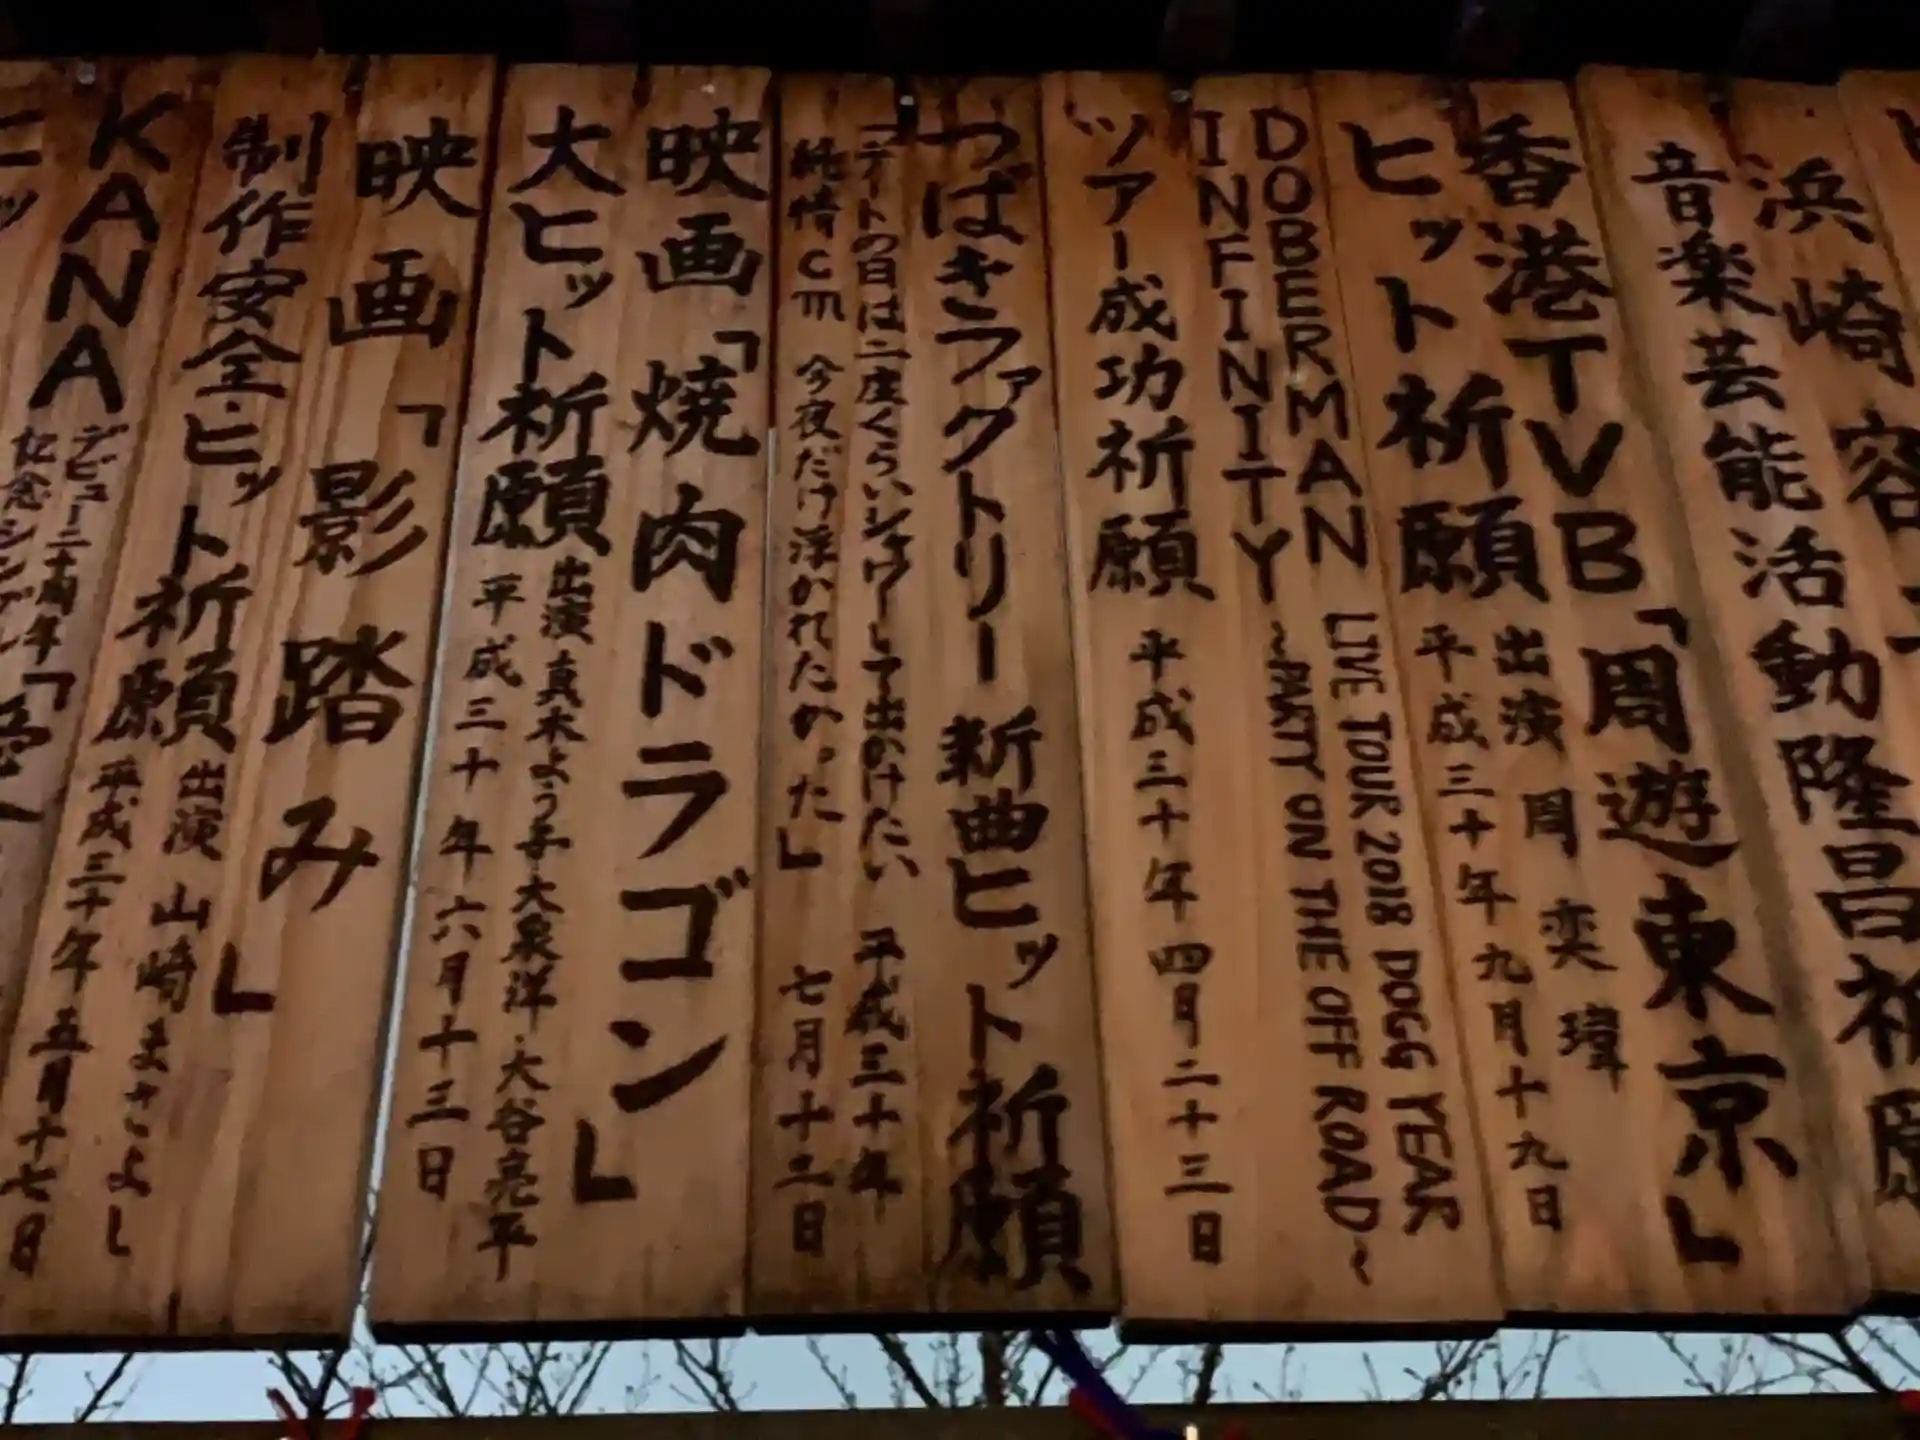 浜崎容子
音楽芸能活動隆昌祈願
香港TVB「周遊東京」
ヒット祈願
出演 周奕瑋
平成三十年九月十九日
DOBERMAN
INFINITY
LIVE TOUR 2018 DOGG YEAR
~PARTY ON THE OFF ROAD~
ツアー成功祈願
平成三十年四月二十三日
つばきファクトリー 新曲ヒット祈願
「デートの日は二度くらいシャワーして出かけたい
純情cm 今夜だけ浮かれたかった」
平成三十年
七月十二日
映画「焼肉ドラゴン」
大ヒット祈願
出演 真木よう子・大泉洋・大谷亮平
平成三十年六月十三日
映画「影踏み」
制作安全・ヒット祈願
出演 山崎まさよし
平成三十年五月十七日
KANA
デビュー二十周年
記念シングル